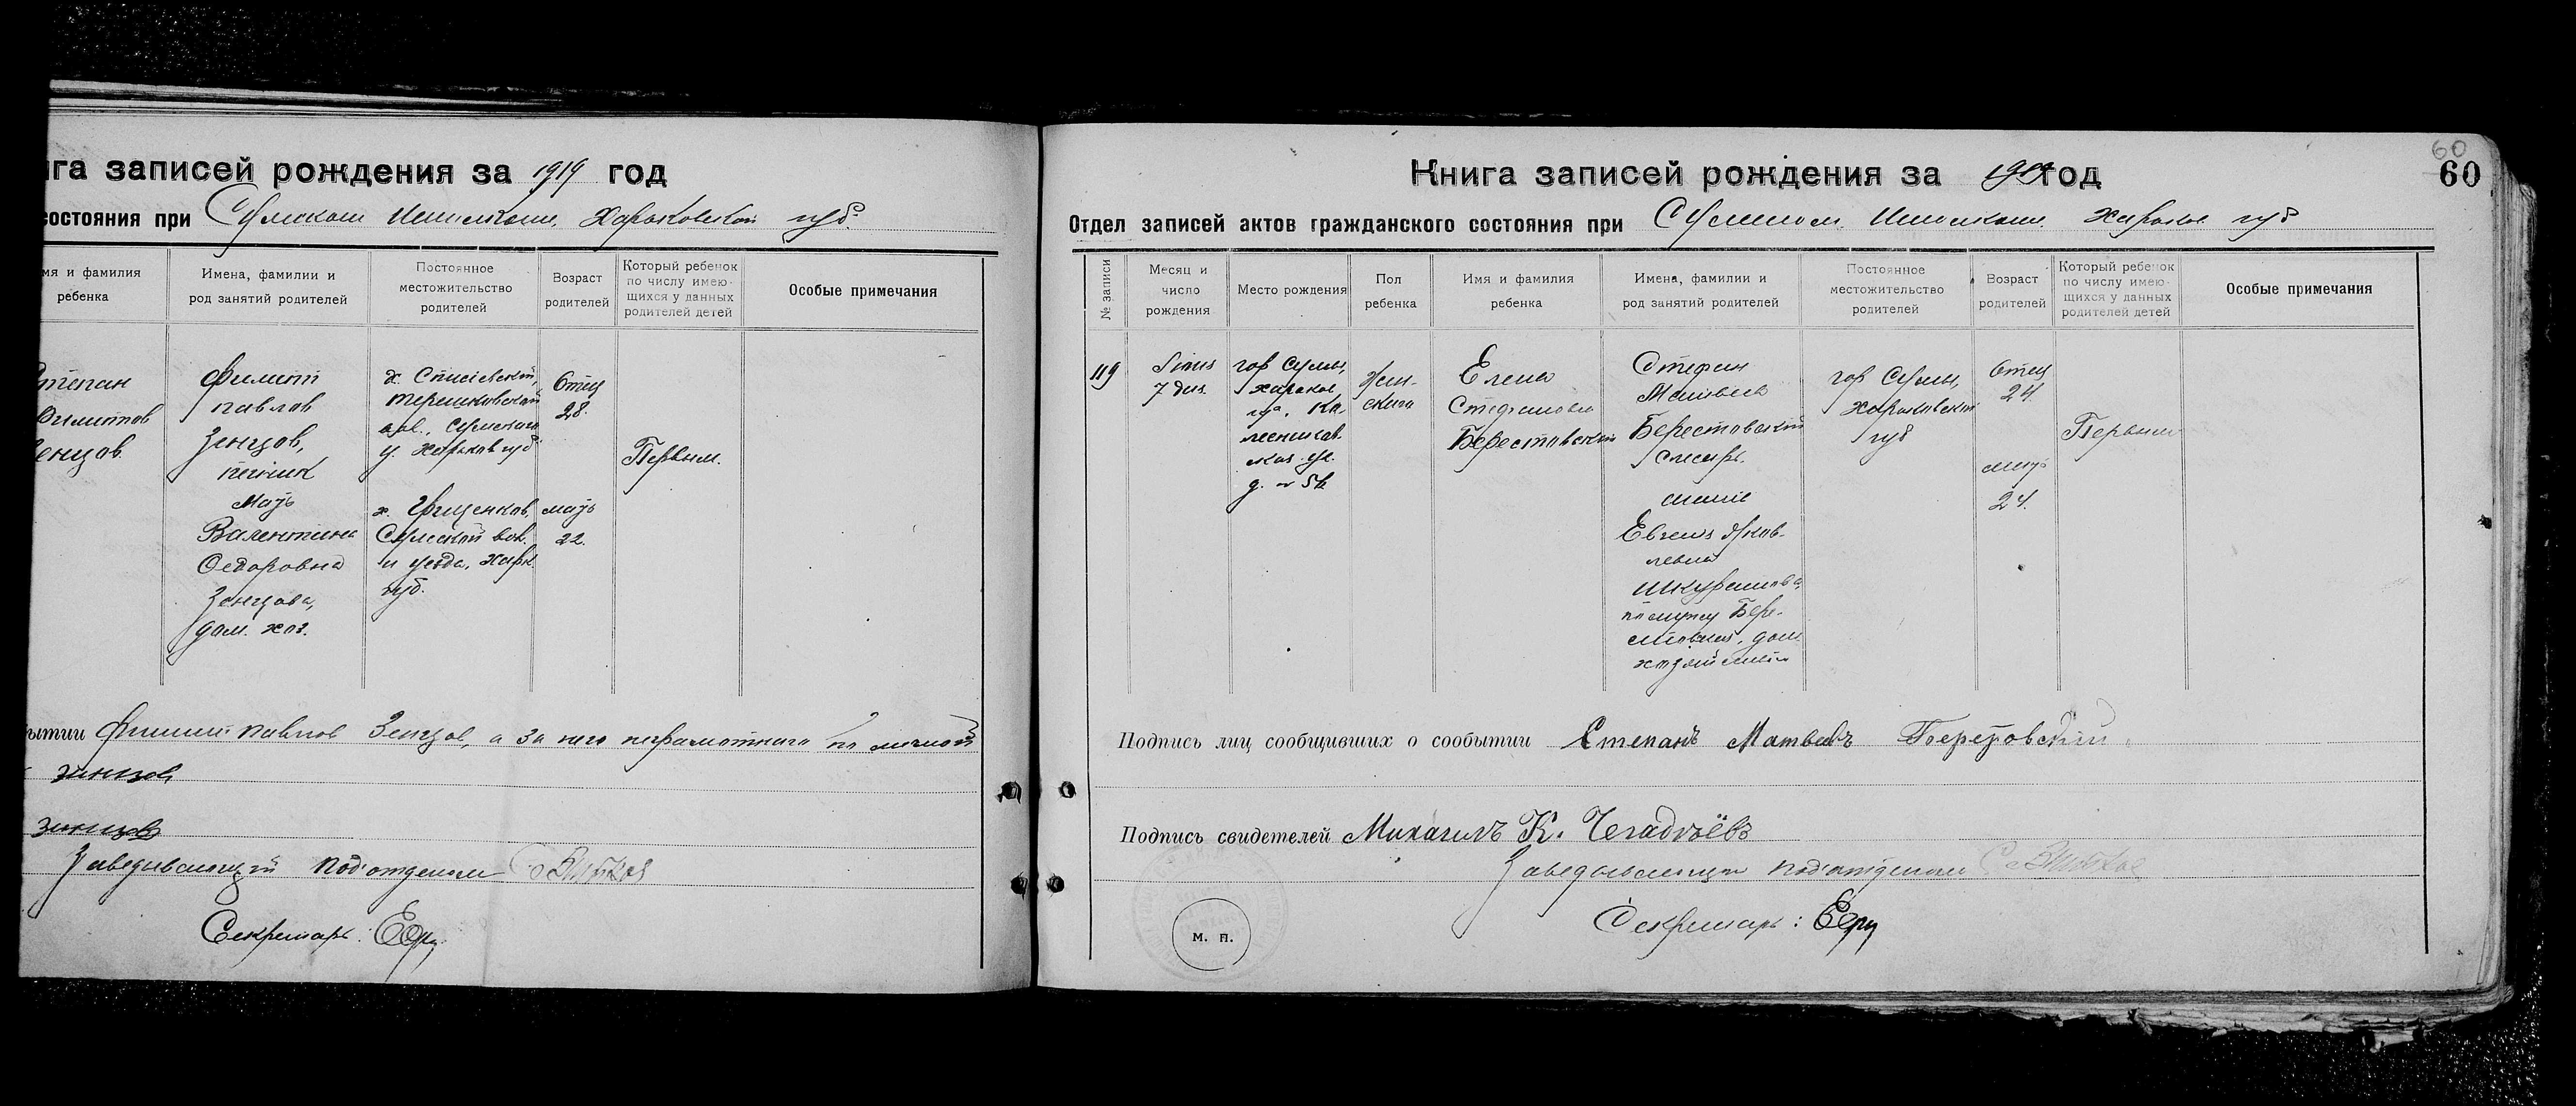 ига записей рождения за 1919 год
состояния при Сумском Исполкоме, Харьковской губ.
мя и фамилия ребенка
Имена, фамилии и род занятий родителей
Постоянное местожительство родителей
Возраст родителей
Который ребенок по числу имеющихся у данных родителей детей
Особые примечания
тепан
Филиппов
енцов.
Филипп
Павлов
Зенцов,
печник
Мать
Валентина
Федоровна
Зенцова,
дом. хоз.
х.
вол., Сумского
у. Харьков губ
х. Грищенков,
Сумской вол.
и уезда, Харк.
губ.
Отец
28.
мать
22.
Первым.
ытии Филипп Павлов Зенцов, а за него неграмотного по личной
Зенцов
Заведывающий подотделом
Секретарь:
60
60
Книга записей рождения за год
Отдел записей актов гражданского состояния при Сумском Исполкоме Харьков губ
№ записи
Месяц и число рождения
Место рождения
Пол ребенка
Имя и фамилия ребенка
Имена, фамилии и род занятий родителей
Постоянное местожительство родителей
Возраст родителей
Который ребенок по числу имею-щихся у данных родителей детей
Особые примечания
119
7 дня.
гор Сумы,
Харьков
д. №
Жен-
ского
Елена
Стефановна
Берестовский
Стефан
Матвеев
Берестовский
слесарь.
Евгения Яков-
левна
по мужу Бере-
стовская, дом.
гор Сумы,
Харьковской
губ
Отец
24.
мать
24.
Первым
Подпись лиц сообщивших о сообытии Степанъ Матвеевъ Берестовский
Подпись свидетелей Михаилъ К.
Заведывающий подотделом
Секретарь:
М. П.